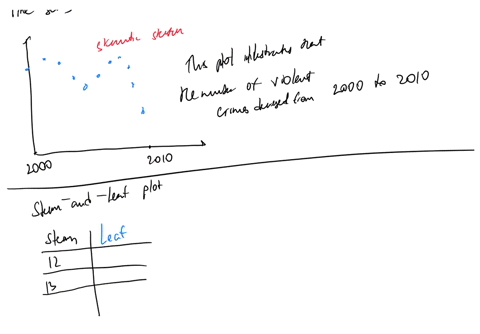 This plot illustrates that
the number of violent
crimes from 2000 to 2010
2000
2010
Stem-and-Leaf plot
Stem Leaf
12
13